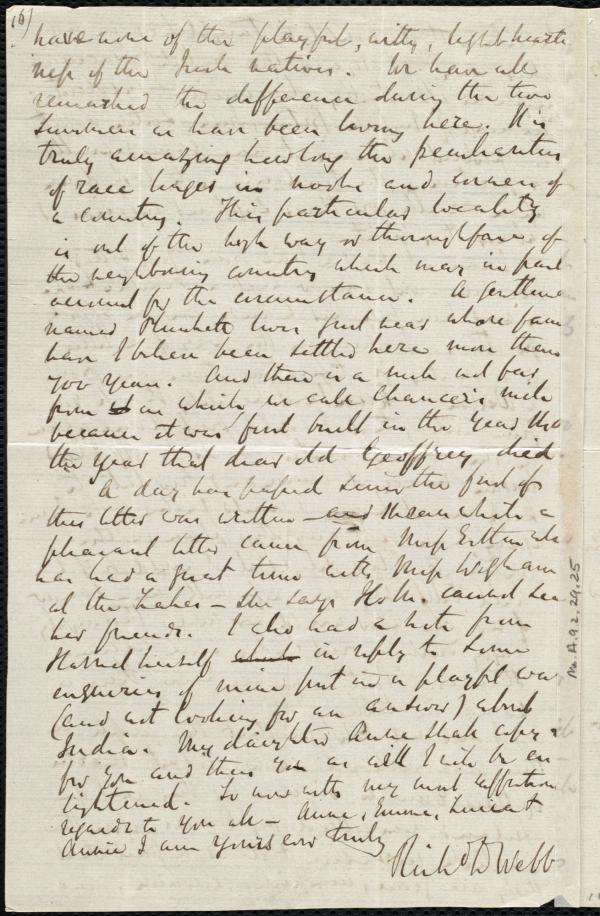 (6)
have none of the playful, witty, light hearted
ness of the Irish natives. We have all
remarked the difference during the two
Summers we have been living here. It is
truly amazing how long the peculiarities
of race linger in nooks and corners of
a country. This particular locality
is out of the high way or thoroughfare of
the neighbouring country which may in part
account for the circumstance. A gentleman
named Plunkett lives just near whose fam
have I believe been settled here more than
700 years. And there is a mile not far
from us which we call Chaucer's mile
because it was first built in the year
the year that dear old Geoffrey died.
A day has passed since the first of
this letter was written – and Meanwhile a
pleasant letter came from Miss Estlin who
has had a great time with Miss Wigham
at the Lakes – She says caused
her friends. I also had a note from
herself which in reply to some
enquiries of mine put in a playful way
(and not looking for an answer) about
India. My daughter Anne shall copy it
for you and then you as well I will be en
lightened. So now with my most affection
regards to you all – Anne, Emma, &
Annie I am yours ever truly
Rich d D Webb
Ms. A.9.2.29.25